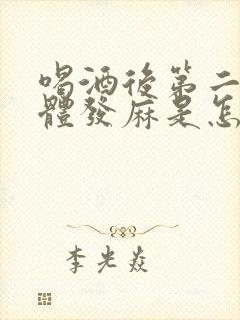 喝酒後第二
體發麻是怎
李光焱